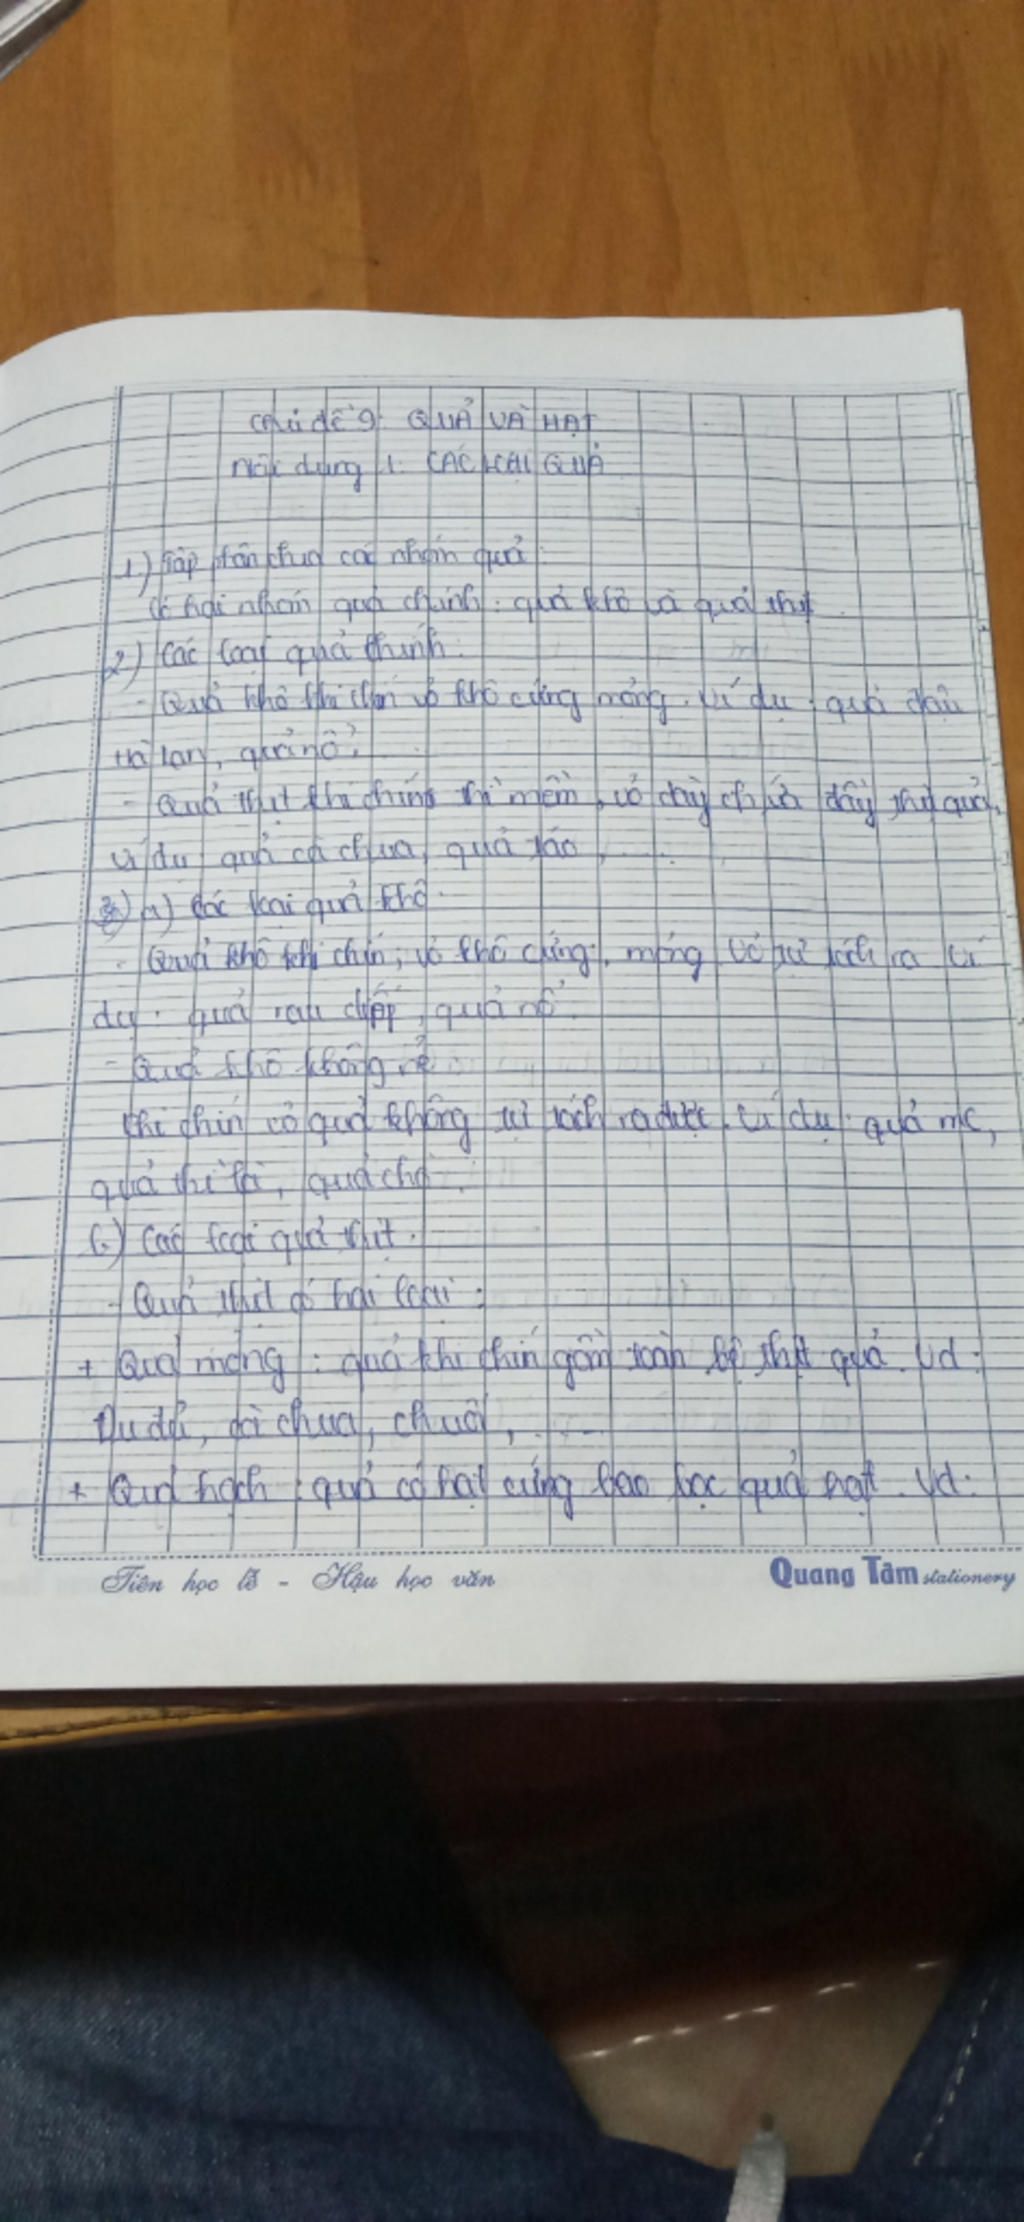 Chủ đề 9: QUẢ VÀ HẠT
Nội dung 1. CÁC LOẠI QUẢ
1.) Tập phân chia các nhóm quả
Có hai nhóm quả chính: quả khô và quả thịt.
2.) Các loại quả chính.
- Quả khô khi chín vỏ khô cứng mỏng. Ví dụ: quả đậu
Hà lan, quả nổ.
- Quả thịt khi chín thì mềm, vỏ dày chứa đầy thịt quả,
ví dụ quả cà chua, quả táo, ...
a) Các loại quả khô.
- Quả khô khi chín, vỏ khô cứng, mỏng vỏ tự tách ra ví
dụ: quả , quả nổ.
- Quả khô không nẻ
Khi chín vỏ quả không tự tách ra được. Ví dụ: quả me,
quả thì là, quả chò.
b) Các loại quả thịt.
- Quả thịt có hai loại:
+ Quả mọng: quả khi chín gồm toàn bộ thịt quả. Vd:
Đu đủ, cà chua, chuối, ...
+ Quả hạch: quả có hạt cứng bao bọc quả hạt. Vd:
Tiên học lễ - Hậu học văn
Quang Tâm stationery